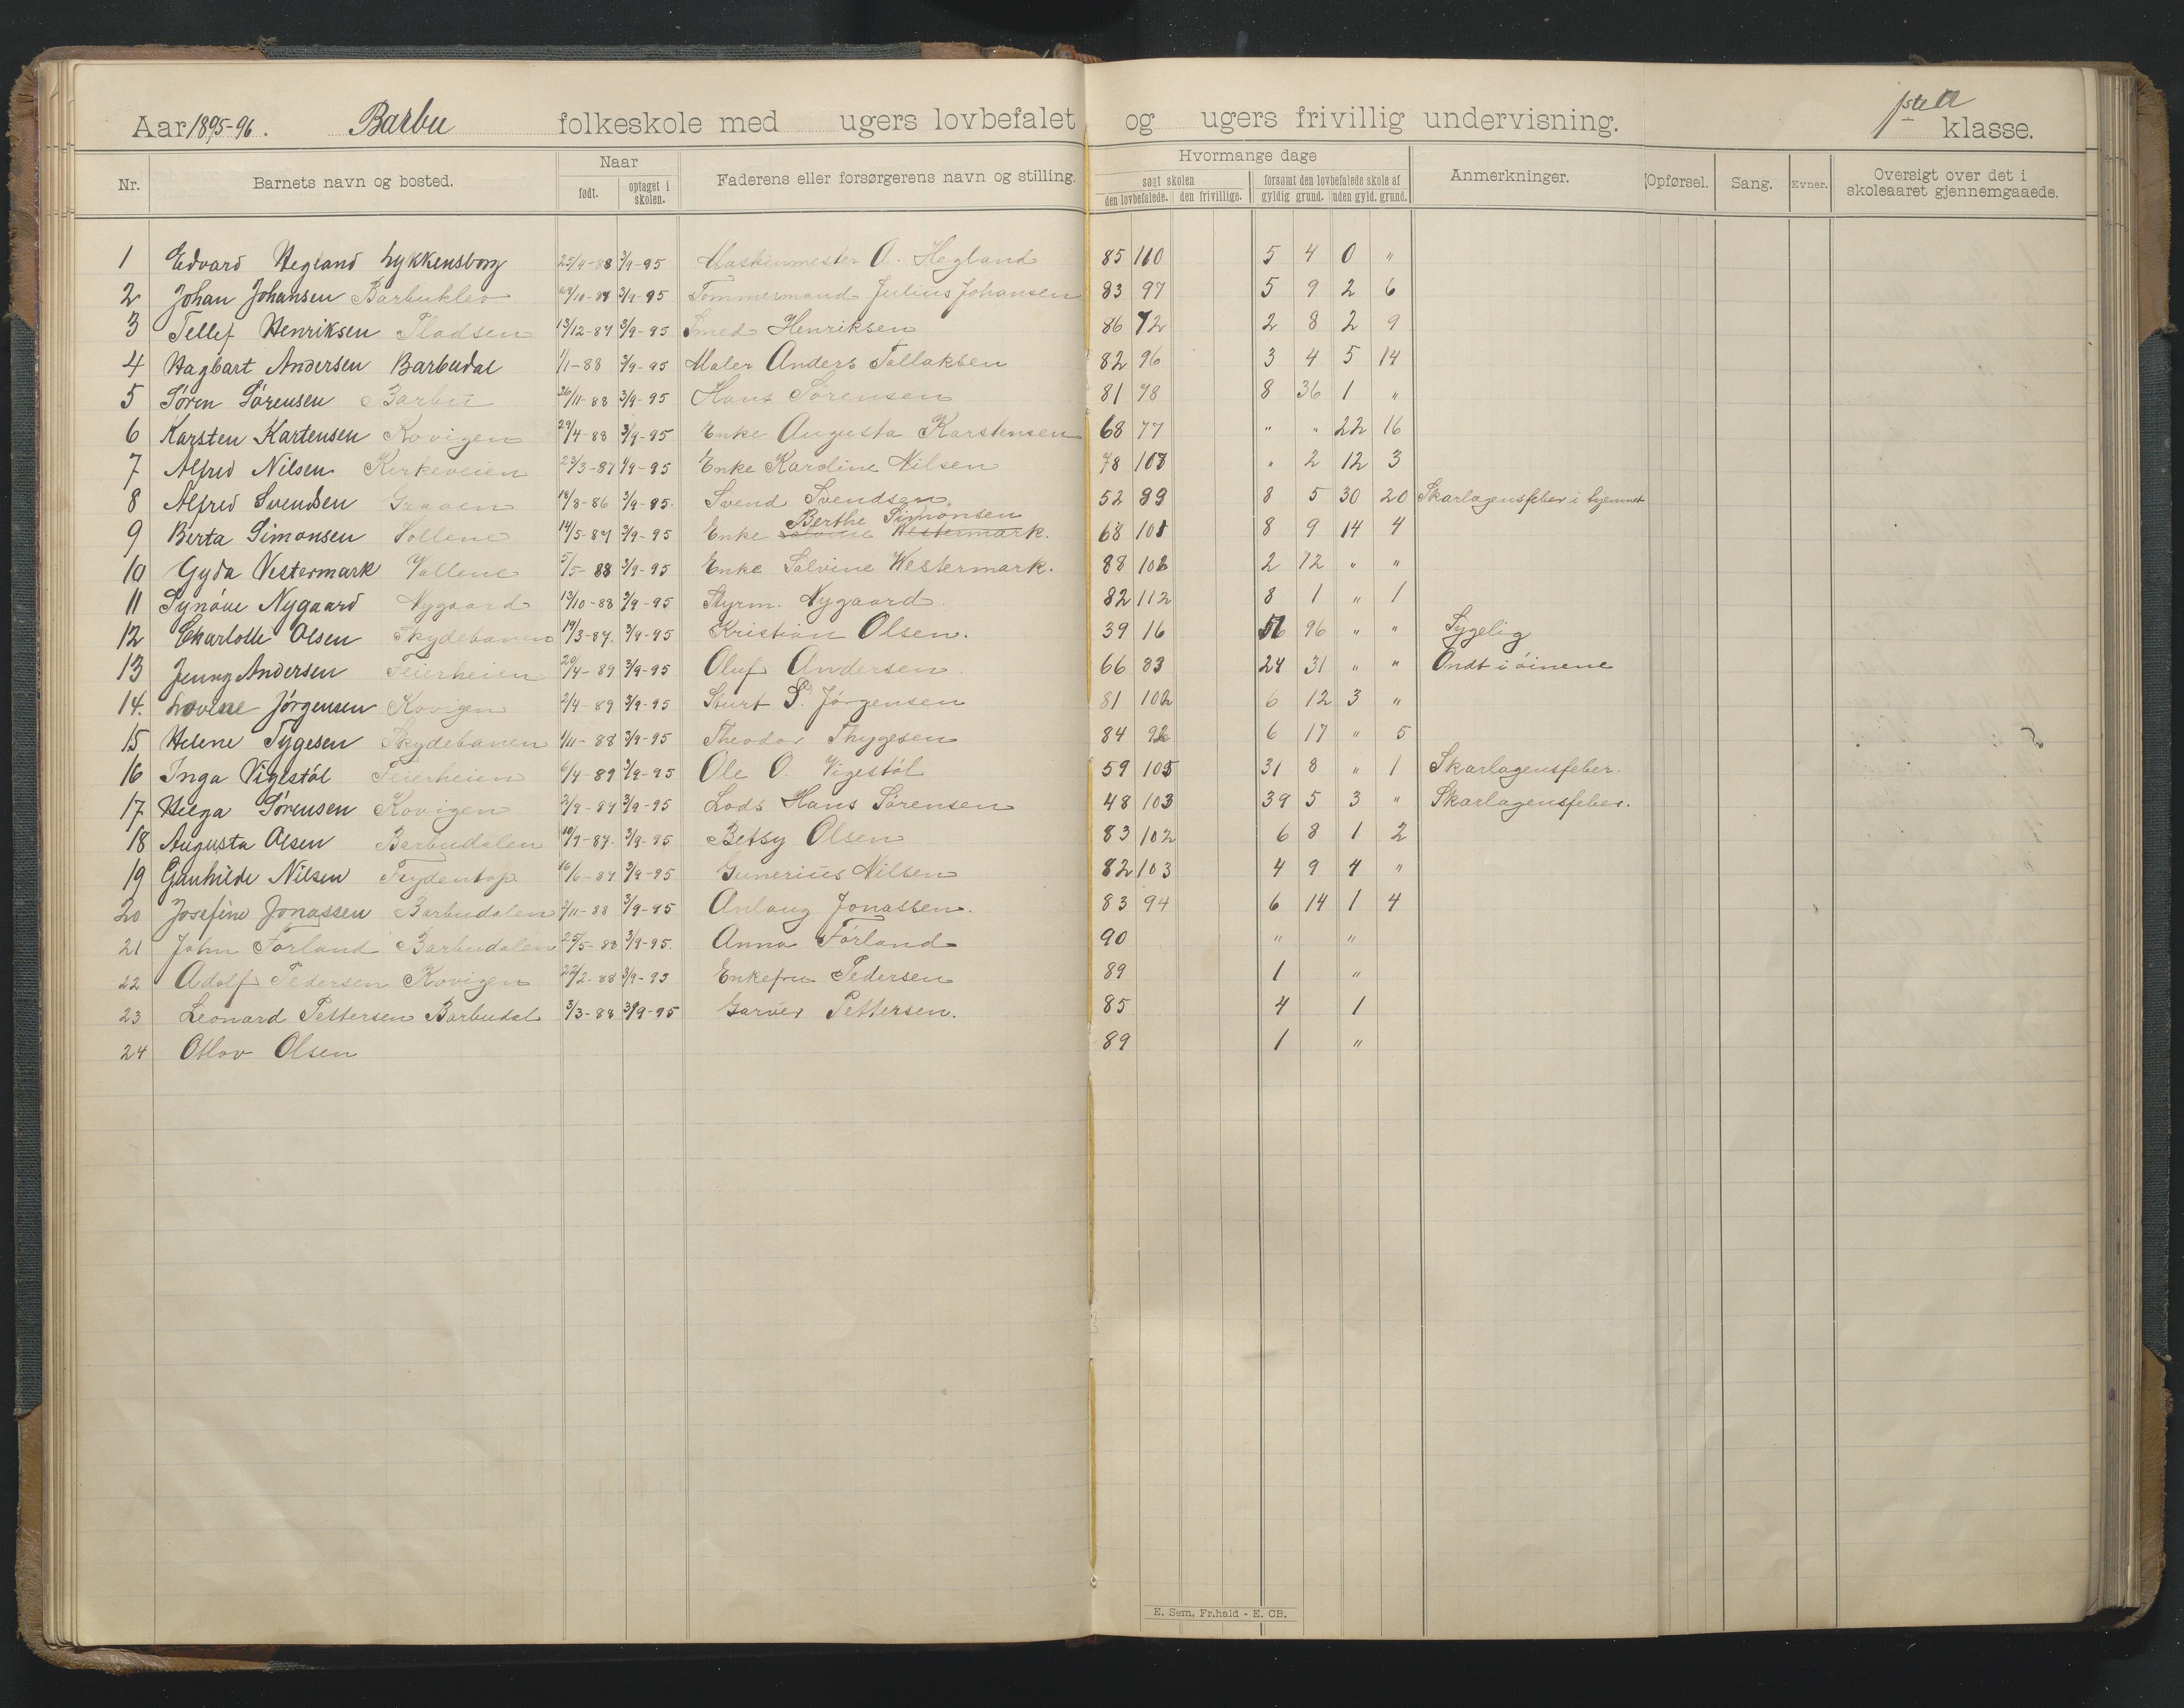 Aar 1895-96. Barbu folkeskole med ugers lovbefalet og ugers frivillig undervisning. 1ste a klasse.
Nr. Barnets navn og bosted. Naar født. optaget i skolen. Faderens eller forsørgerens navn og stilling. Hvormange dage søgt skolen den lovbefalede. den frivillige. forsømt den lovbefalede skole af gyldig grund. uden gyld. grund. Anmerkninger. Opførsel. Sang. Evner. Oversigt over det i skoleaaret gjennemgaaede.
1 Edvard Hegland Lykkensborg 25/9-88 3/9-95 Maskinmester A. Hegland 85 110 5 4 0 "
2 Johan Johansen Barbuklev 3/9-95 Tømmermand Julius Johansen 83 97 5 9 2 6
3 Tellef Henriksen Pladsen 13/12-87 3/9-95 Smed Henriksen 86 72 2 8 2 9
4 Hagbart Andersen Barbudal 1/1-88 3/9-95 Maler Anders Tallaksen 82 96 3 4 5 14
5 Søren Sørensen Barbu 26/11-88 3/9-95 Hans Sørensen 81 78 8 36 1 "
6 Karsten Kartensen Kovigen 29/4-88 3/9-95 Enke Augusta Karstensen 68 77 " " 22 16
7 Alfred Nilsen Kirkeveien 23/3-87 3/9-95 Enke Karoline Nilsen 78 108 " 2 12 3
8 Alfred Svendsen Graaen 18/8-86 3/9-95. Svend Svendsen 52 89 8 5 30 20 Skarlagensfeber i hjemmet
9 Berta Simonsen Sollene 14/5-87 3/9-95 Enke Salvine Westermark. Berthe Simonsen 68 101 8 9 14 4
10 Gyda Vestermark Vollene 5/5-88 3/9-95 Enke Salvine Westermark. 88 102 2 12 " "
11 Synøve Nygaard Nygaard 13/10-88 3/9-95 Styrm. Nygaard. 82 112 8 1 " 1
12 Charlotte Olsen Skydebanen 19/3-87. 3/9-95 Kristian Olsen. 39 16 96 " " Sygelig
13 Jenny Andersen Feierheien 20/4-89 3/9-95 Oluf Andersen 66 83 24 31 " " Ondt i øinene
14. Lovise Jørgensen Kovigen 2/4-89 3/9-95 Sturt S. Jørgensen 81 102 6 12 3 "
15 Helene Tygesen Skydebanen 1/11-88 3/9-95 Theodor Thygesen 84 92 6 17 " 5
16 Inga Vigestøl Feierheien 6/4-89 3/9-95 Ole O. Vigestøl 59 105 31 8 " 1 Skarlagensfeber.
17 Helga Sørensen Kovigen 2/9-87 3/9-95 Lods Hans Sørensen 48 103 39 5 3 " Skarlagensfeber.
18 Augusta Olsen Barbudalen 10/9-87. 3/9-95 Betsy Olsen 83 102 6 8 1 2
19 Gunhilde Nilsen Frydentop 16/6-87 3/9-95 Gunerius Nilsen 82 103 4 9 4 "
20 Josefine Jonassen Barbudalen 2/11-88 3/9-95 Anlaug Jonassen. 83 94 6 14 1 4
21 John Førland Barbudalen 25/5-88 3/9-95. Anna Førland 90 " "
22 Adolf Pedersen Kovigen 22/2-88 3/9-93 Enkefru Pedersen 89 1 "
23 Leonard Pettersen Barbudal 3/3-88 3/9-95 Garver Pettersen. 85 4 1
24 Otlov Olsen 89 1 "
E. Sem, Fr.hald - E. CB.